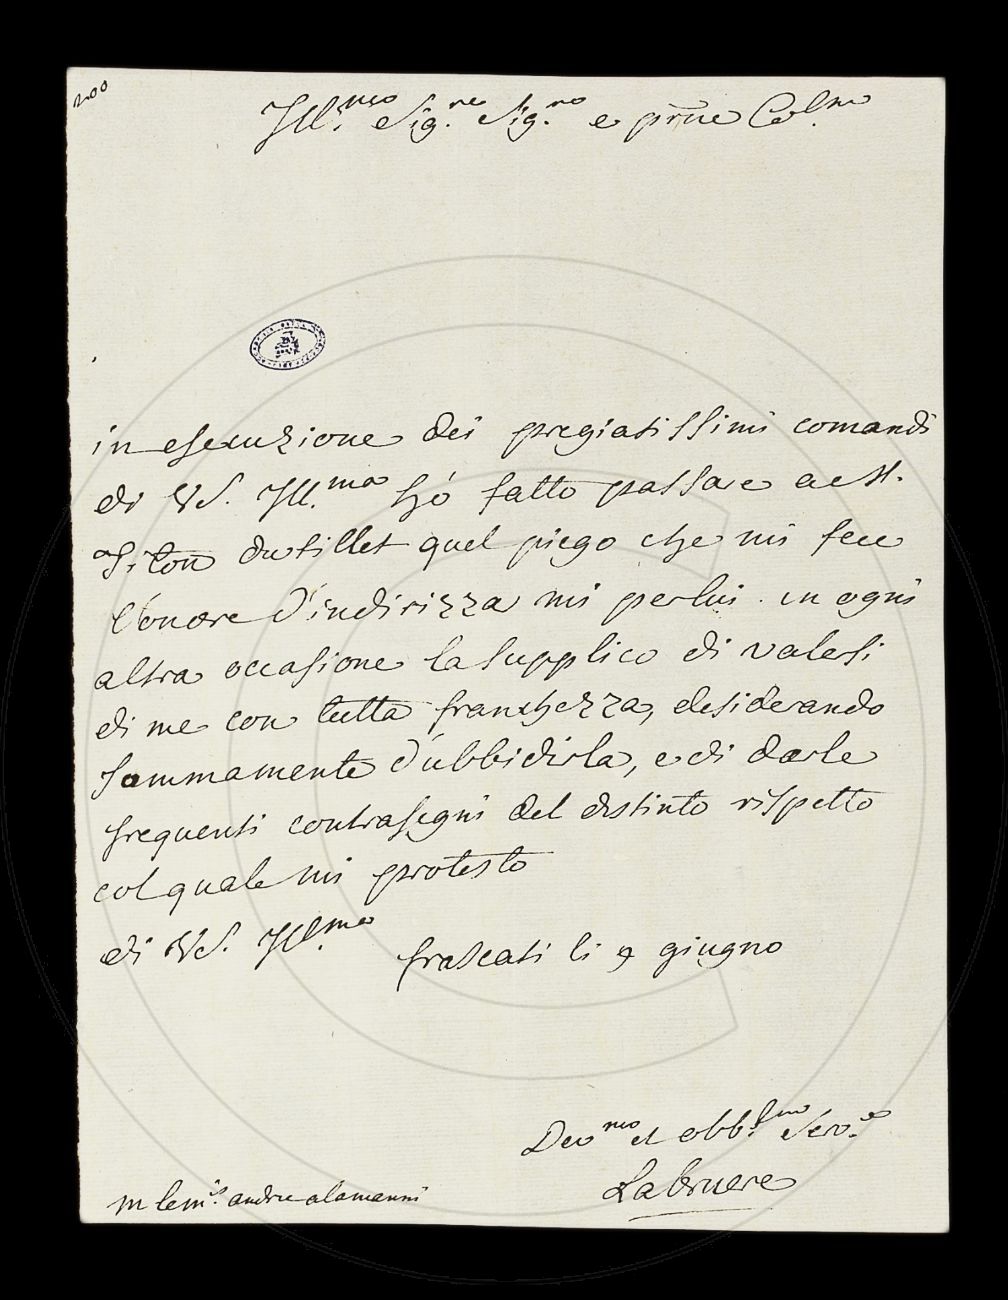 200
Ill.mo Sig.re Sig.ro e prne Col.mo
in esecuzione dei pregiatissimi comandi
di VS. Ill.ma hò fatto passare a M.
Titon du tillet quel piego che mi fece
l'onore d'indirizza mi per lui. in ogni
altra occasione la supplico di valersi
di me con tutta franchezza, desiderando
sommamente d'ubbidirla, e di darle
frequenti contrasegni del distinto rispetto
col quale mi protesto
di VS. Ill.ma
frascati li 9 giugno
Dev.mo et obb.mo Serv.e
Labruere
m le m.is andre alamanni